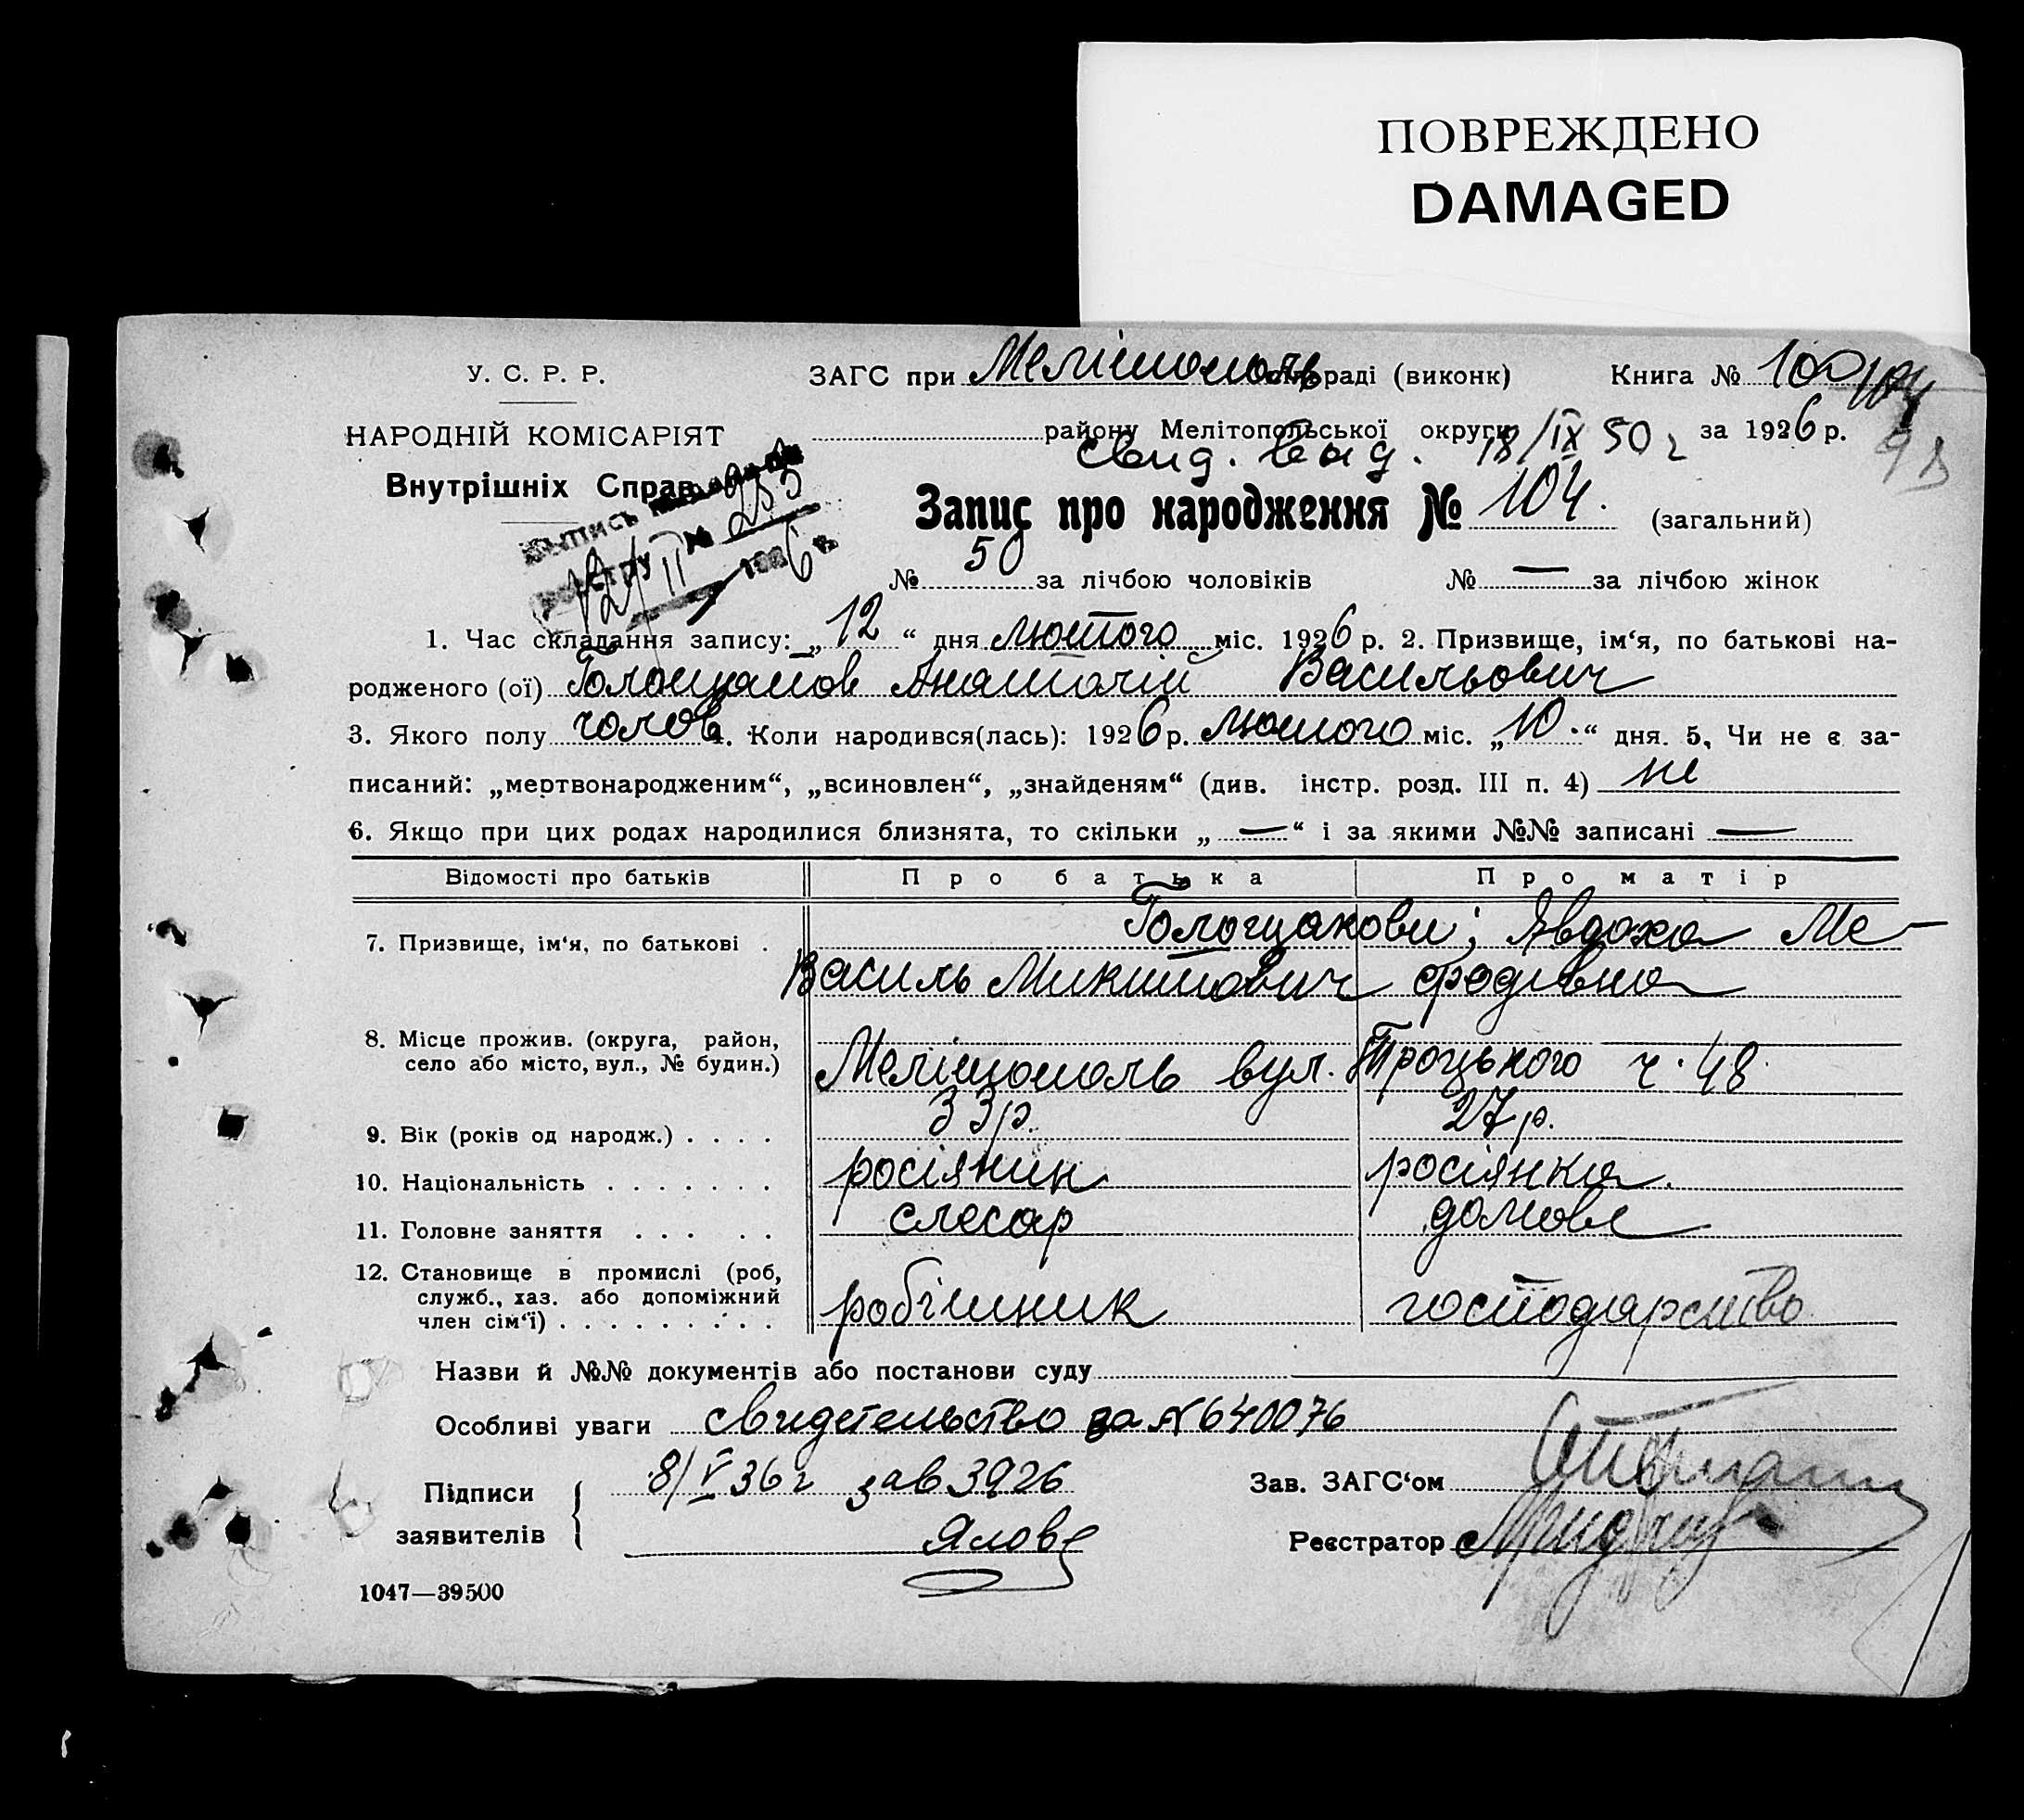 ПОВРЕЖДЕНО
DAMAGED
У. С. Р. Р.
ЗАГС при Мелітополь раді (виконк)
Книга № 100
НАРОДНІЙ КОМІСАРІЯТ
Внутрішніх Справ
району Мелітопольської округи
за 1926 р.
98
Свид. выд. 18/IX 50 г
Выпись
№ 233
12/II 1926 г.
Запис про народження № 104. (загальний)
№ 50 за лічбою чоловіків № — за лічбою жінок
1. Час складання запису: „12“ дня лютого міс. 1926 р. 2. Призвище, ім‘я, по батькові на-
родженого (ої) Голощапов Анатолій Васильович
3. Якого полу чолов 4. Коли народився(лась): 1926 р. лютого міс. „10.“ дня. 5, Чи не є за-
писаний: „мертвонародженим“, „всиновлен“, „знайденям“ (див. інстр. розд. III п. 4) не
6. Якщо при цих родах народилися близнята, то скільки „—“ і за якими №№ записані —
Відомості про батьків Про батька Про матір
7. Призвище, ім‘я, по батькові .
Голощапови; Явдоха Ме-
Василь Микитович фодівна
8. Місце прожив. (округа, район,
село або місто, вул., № будин.)
Мелітополь вул. Троцького ч. 48
9. Вік (років од народж.) . . . . 33 р. 27 р.
10. Національність . . . . . . . росіянин росіянка.
11. Головне заняття . . . . . слесар домове
12. Становище в промислі (роб,
служб., хаз. або допоміжний
член сім‘ї) . . . . . . . . .
робітник господарство
Назви й №№ документів або постанови суду
Особливі уваги свидетельство за № 640076
Підписи
заявителів
8/V 36 г зав 3926
Ялов
Зав. ЗАГС‘ом
Реєстратор
1047—39500